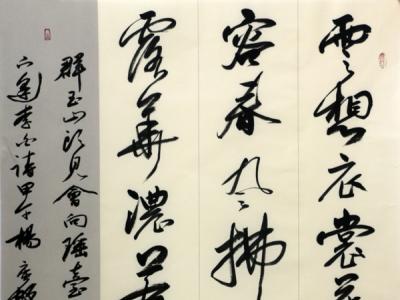 雲想衣裳
容春風拂
露華濃若
群玉山頭見會向瑤臺
下逢李白詩甲午楊